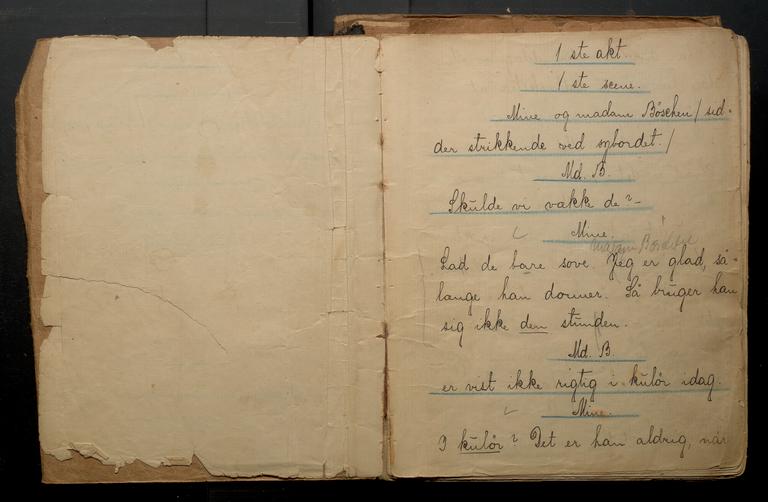 1 ste akt.
1 ste scene.
Mine og madam Böschen / sid-
der strikkende ved sybordet. /
Md. B.
Skulde vi vække de? -
Mine.
Lad de bare sove. Jeg er glad, så-
længe han dormer. Så bruger han
sig ikke den stunden.
Md. B.
er vist ikke rigtig i kulör idag.
Mine.
I kulör? Det er han aldrig, når